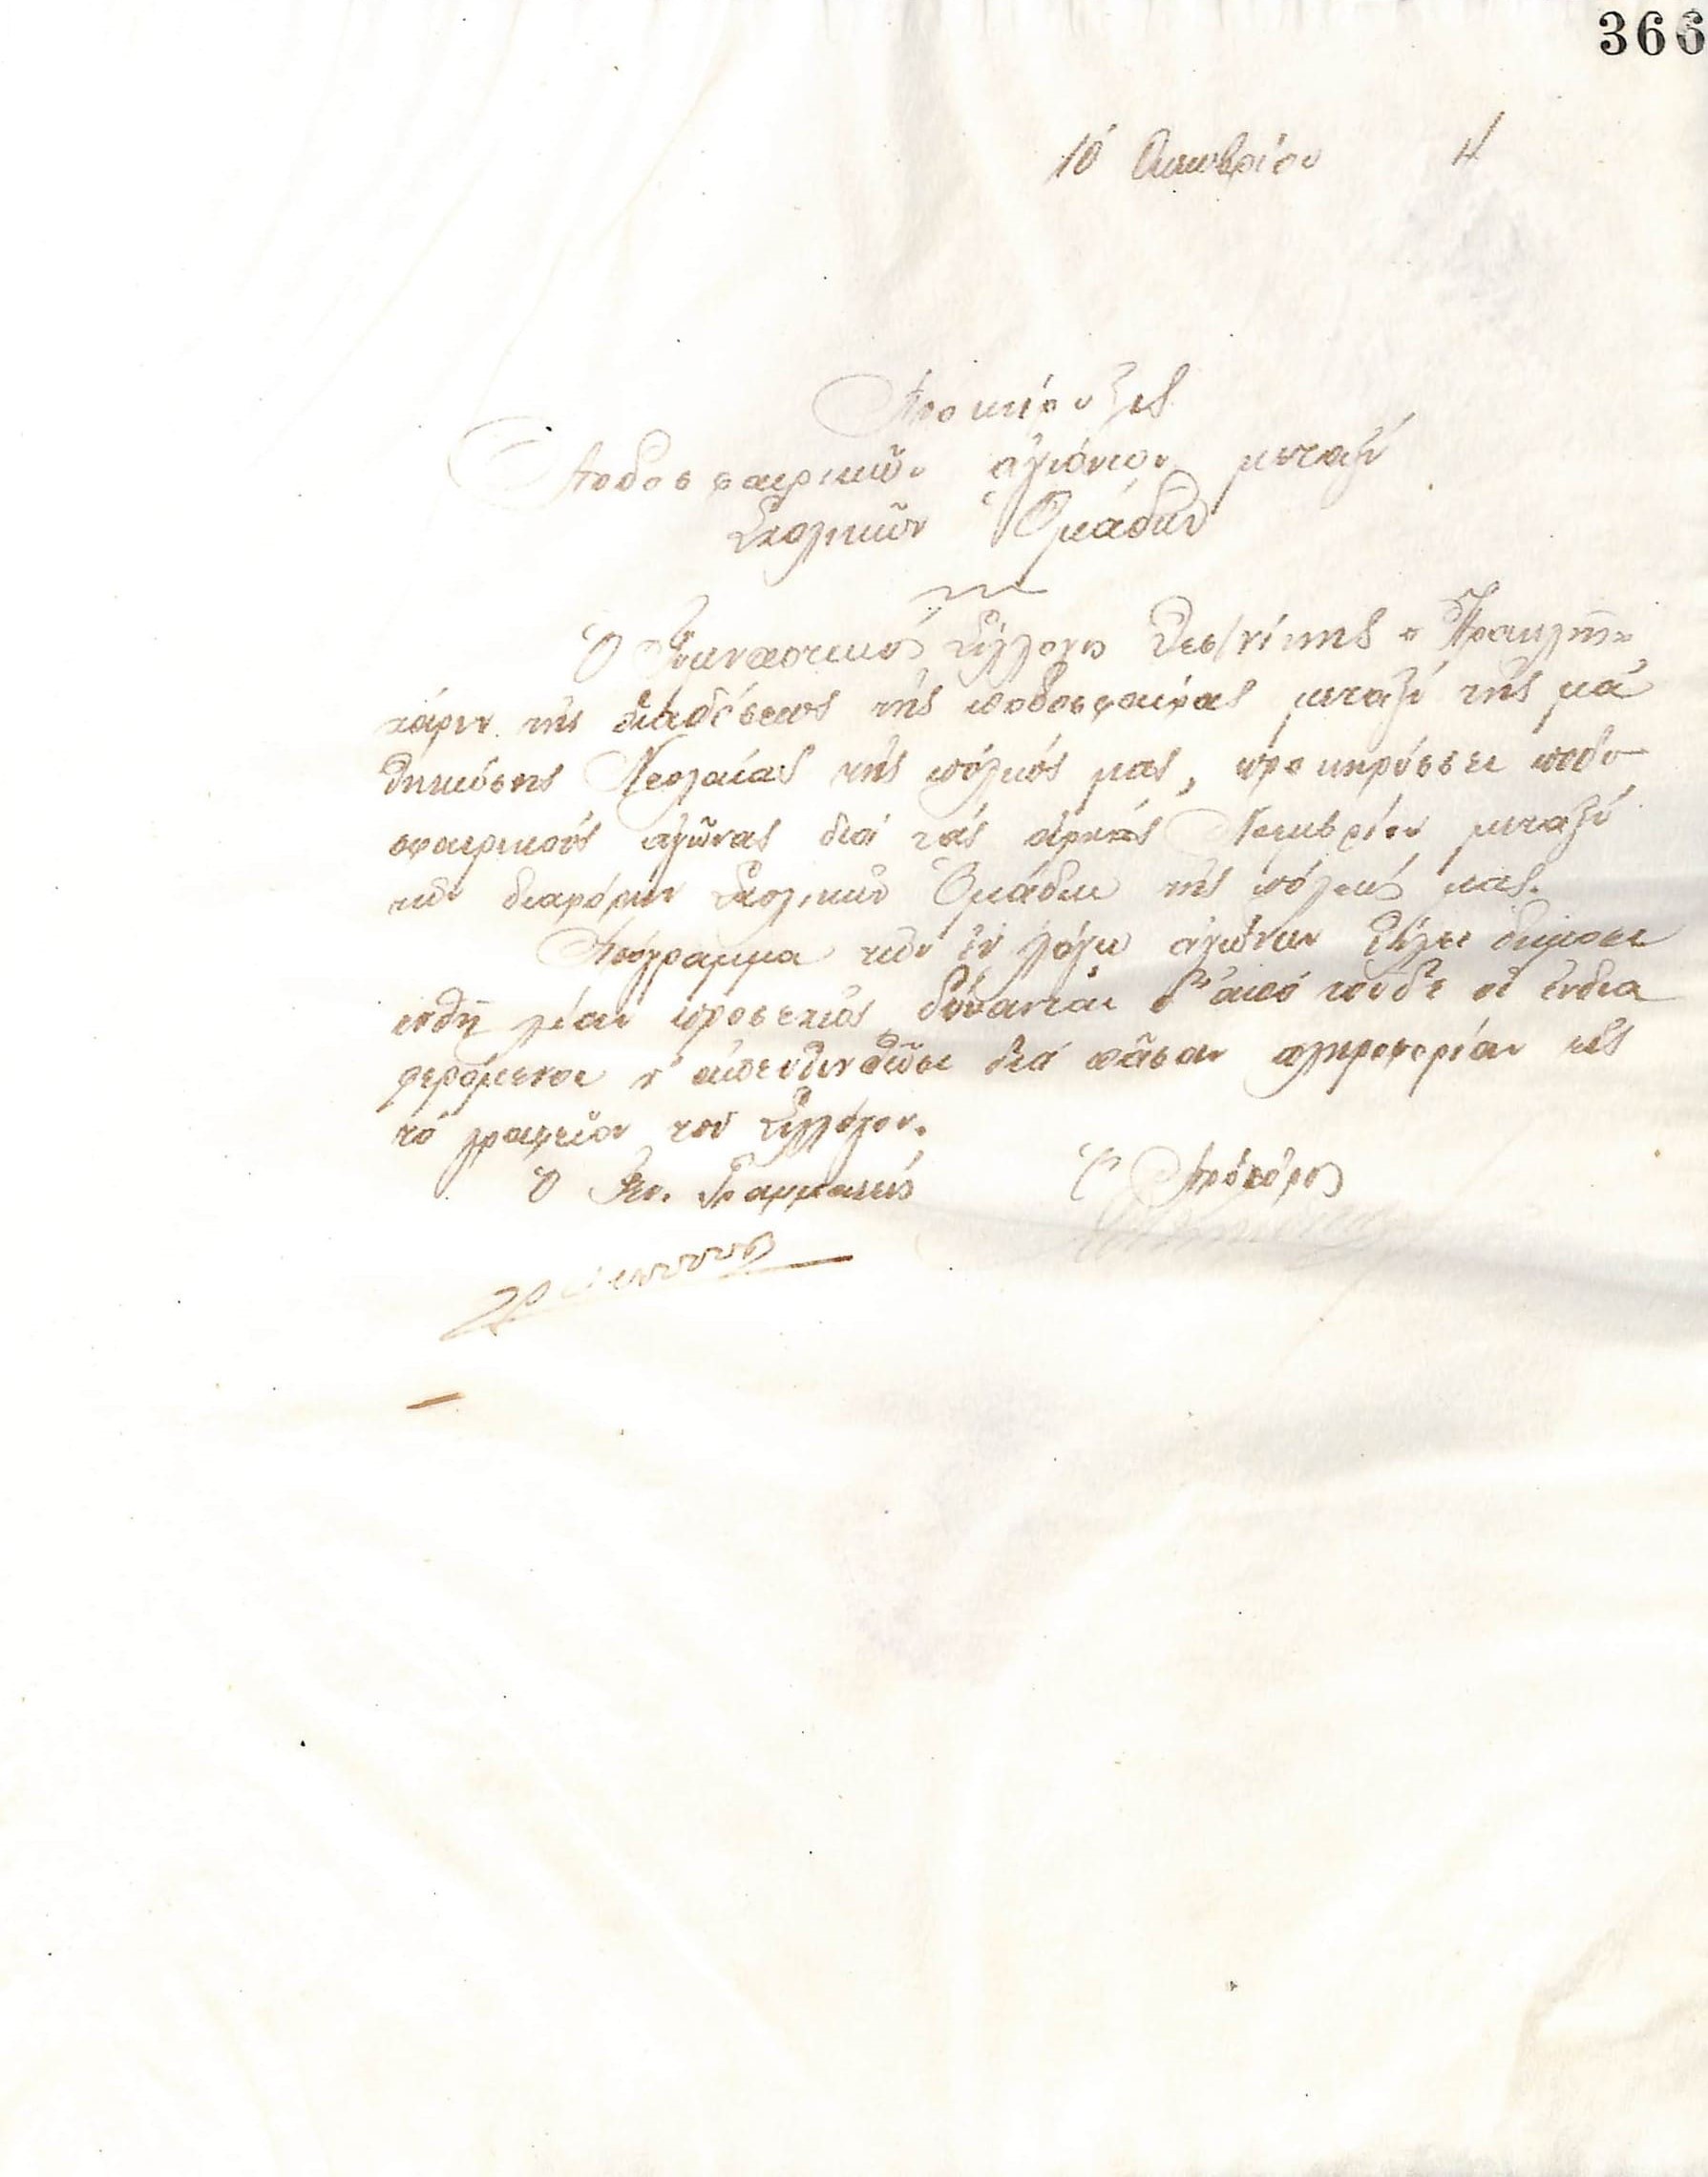 366
10 Οκτωβρίου 4
Προκήρυξις
Ποδοσφαιρικῶν ἀγώνων μεταξύ
Σχολικῶν Ὁμάδων
Ὁ Γυμναστικός Σύλλογος Θεσ/νίκης "Ἡρακλῆς"
χάριν τῆς διαδόσεως τῆς ποδοσφαίρας μεταξύ τῆς μα
θητευόσης Νεολαίας τῆς πόλεώς μας, προκηρύσσει ποδο
σφαιρικούς ἀγῶνας διά τάς ἀρχάς Νοεμβρίου μεταξύ
τῶν διαφόρων Σχολικῶν Ὁμάδων τῆς πόλεώς μας.
Πρόγραμμα τῶν ἐν λόγω ἀγώνων θέλει δημοσι
ευθῆ λίαν προσεχῶς δύνανται δ' ἀπό τοῦδε οἱ ἐνδια
φερόμενοι ν' ἀπευθυνθῶσι διά πᾶσαν πληροφορίαν εἰς
τό γραφεῖον τοῦ Συλλόγου.
Ὁ Γεν. Γραμματεύς Ὁ Πρόεδρος